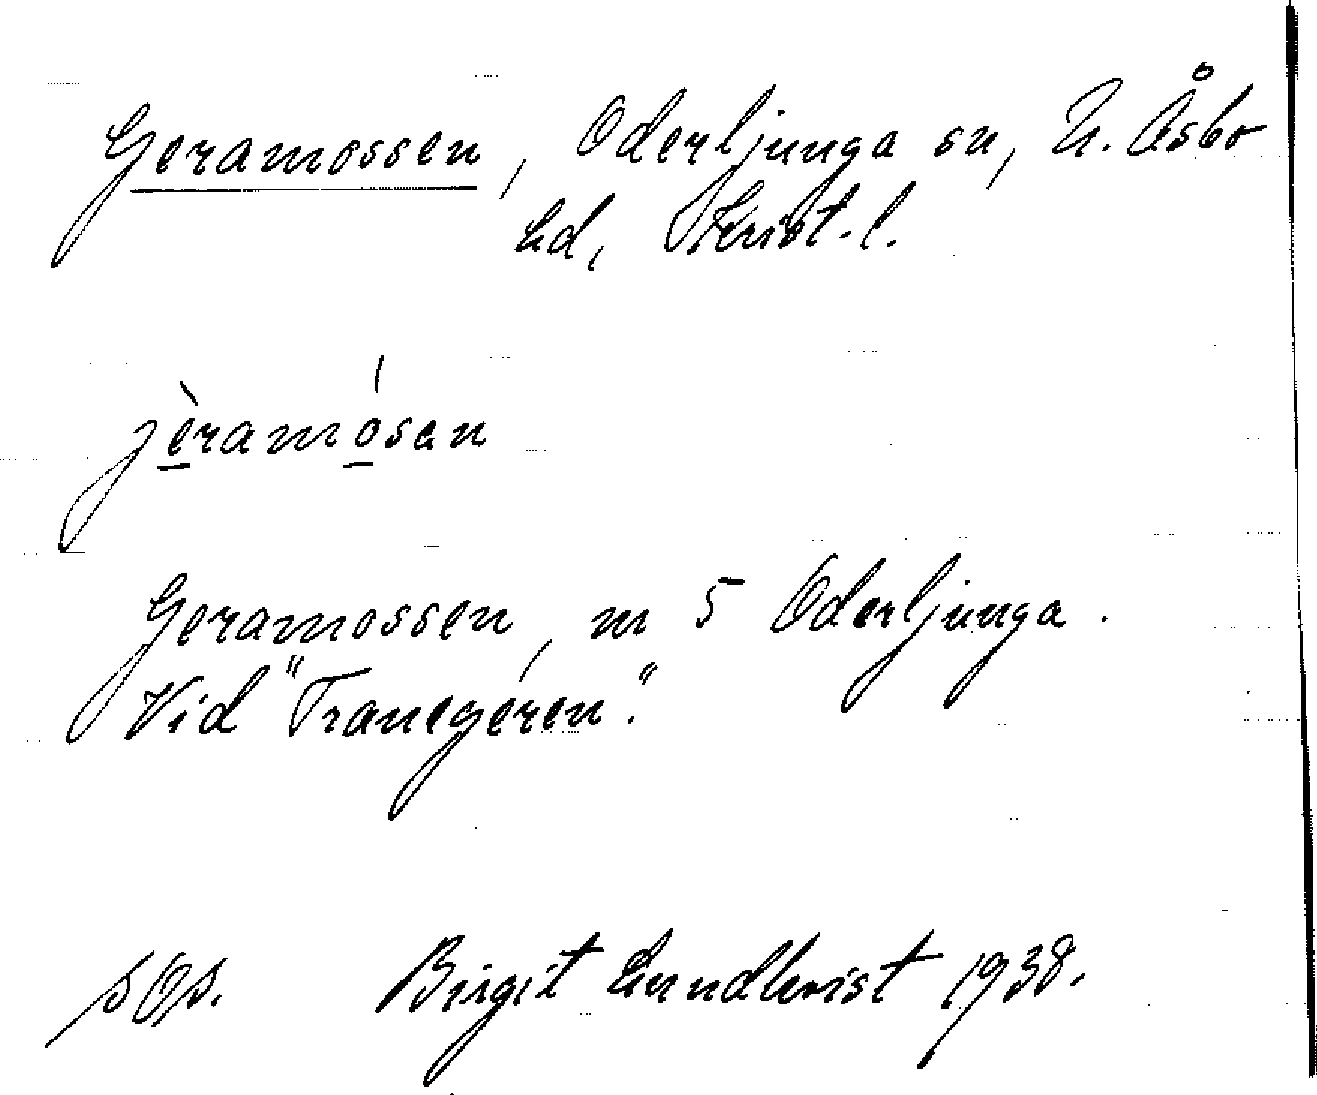 Geramossen, Oderljunga sn, N. Åsbo
hd, Krist. l.
jèramósan
Geramossen, m 5 Oderljunga.
Vid "Tranegéren."
Birgit Lundkvist 1938.